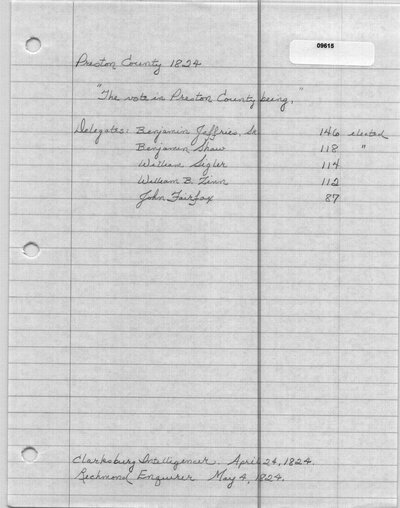 09615
Preston County 1824
"The vote in Preston County being,"
Delegates: Benjamin Jeffries, Sr 146 elected
Benjamin Shaw 118 "
William Sigler 114
William B. Zinn 112
John Fairfax 87
Clarksburg Intelligencer. April 24, 1824.
Richmond Enquirer May 4, 1824.